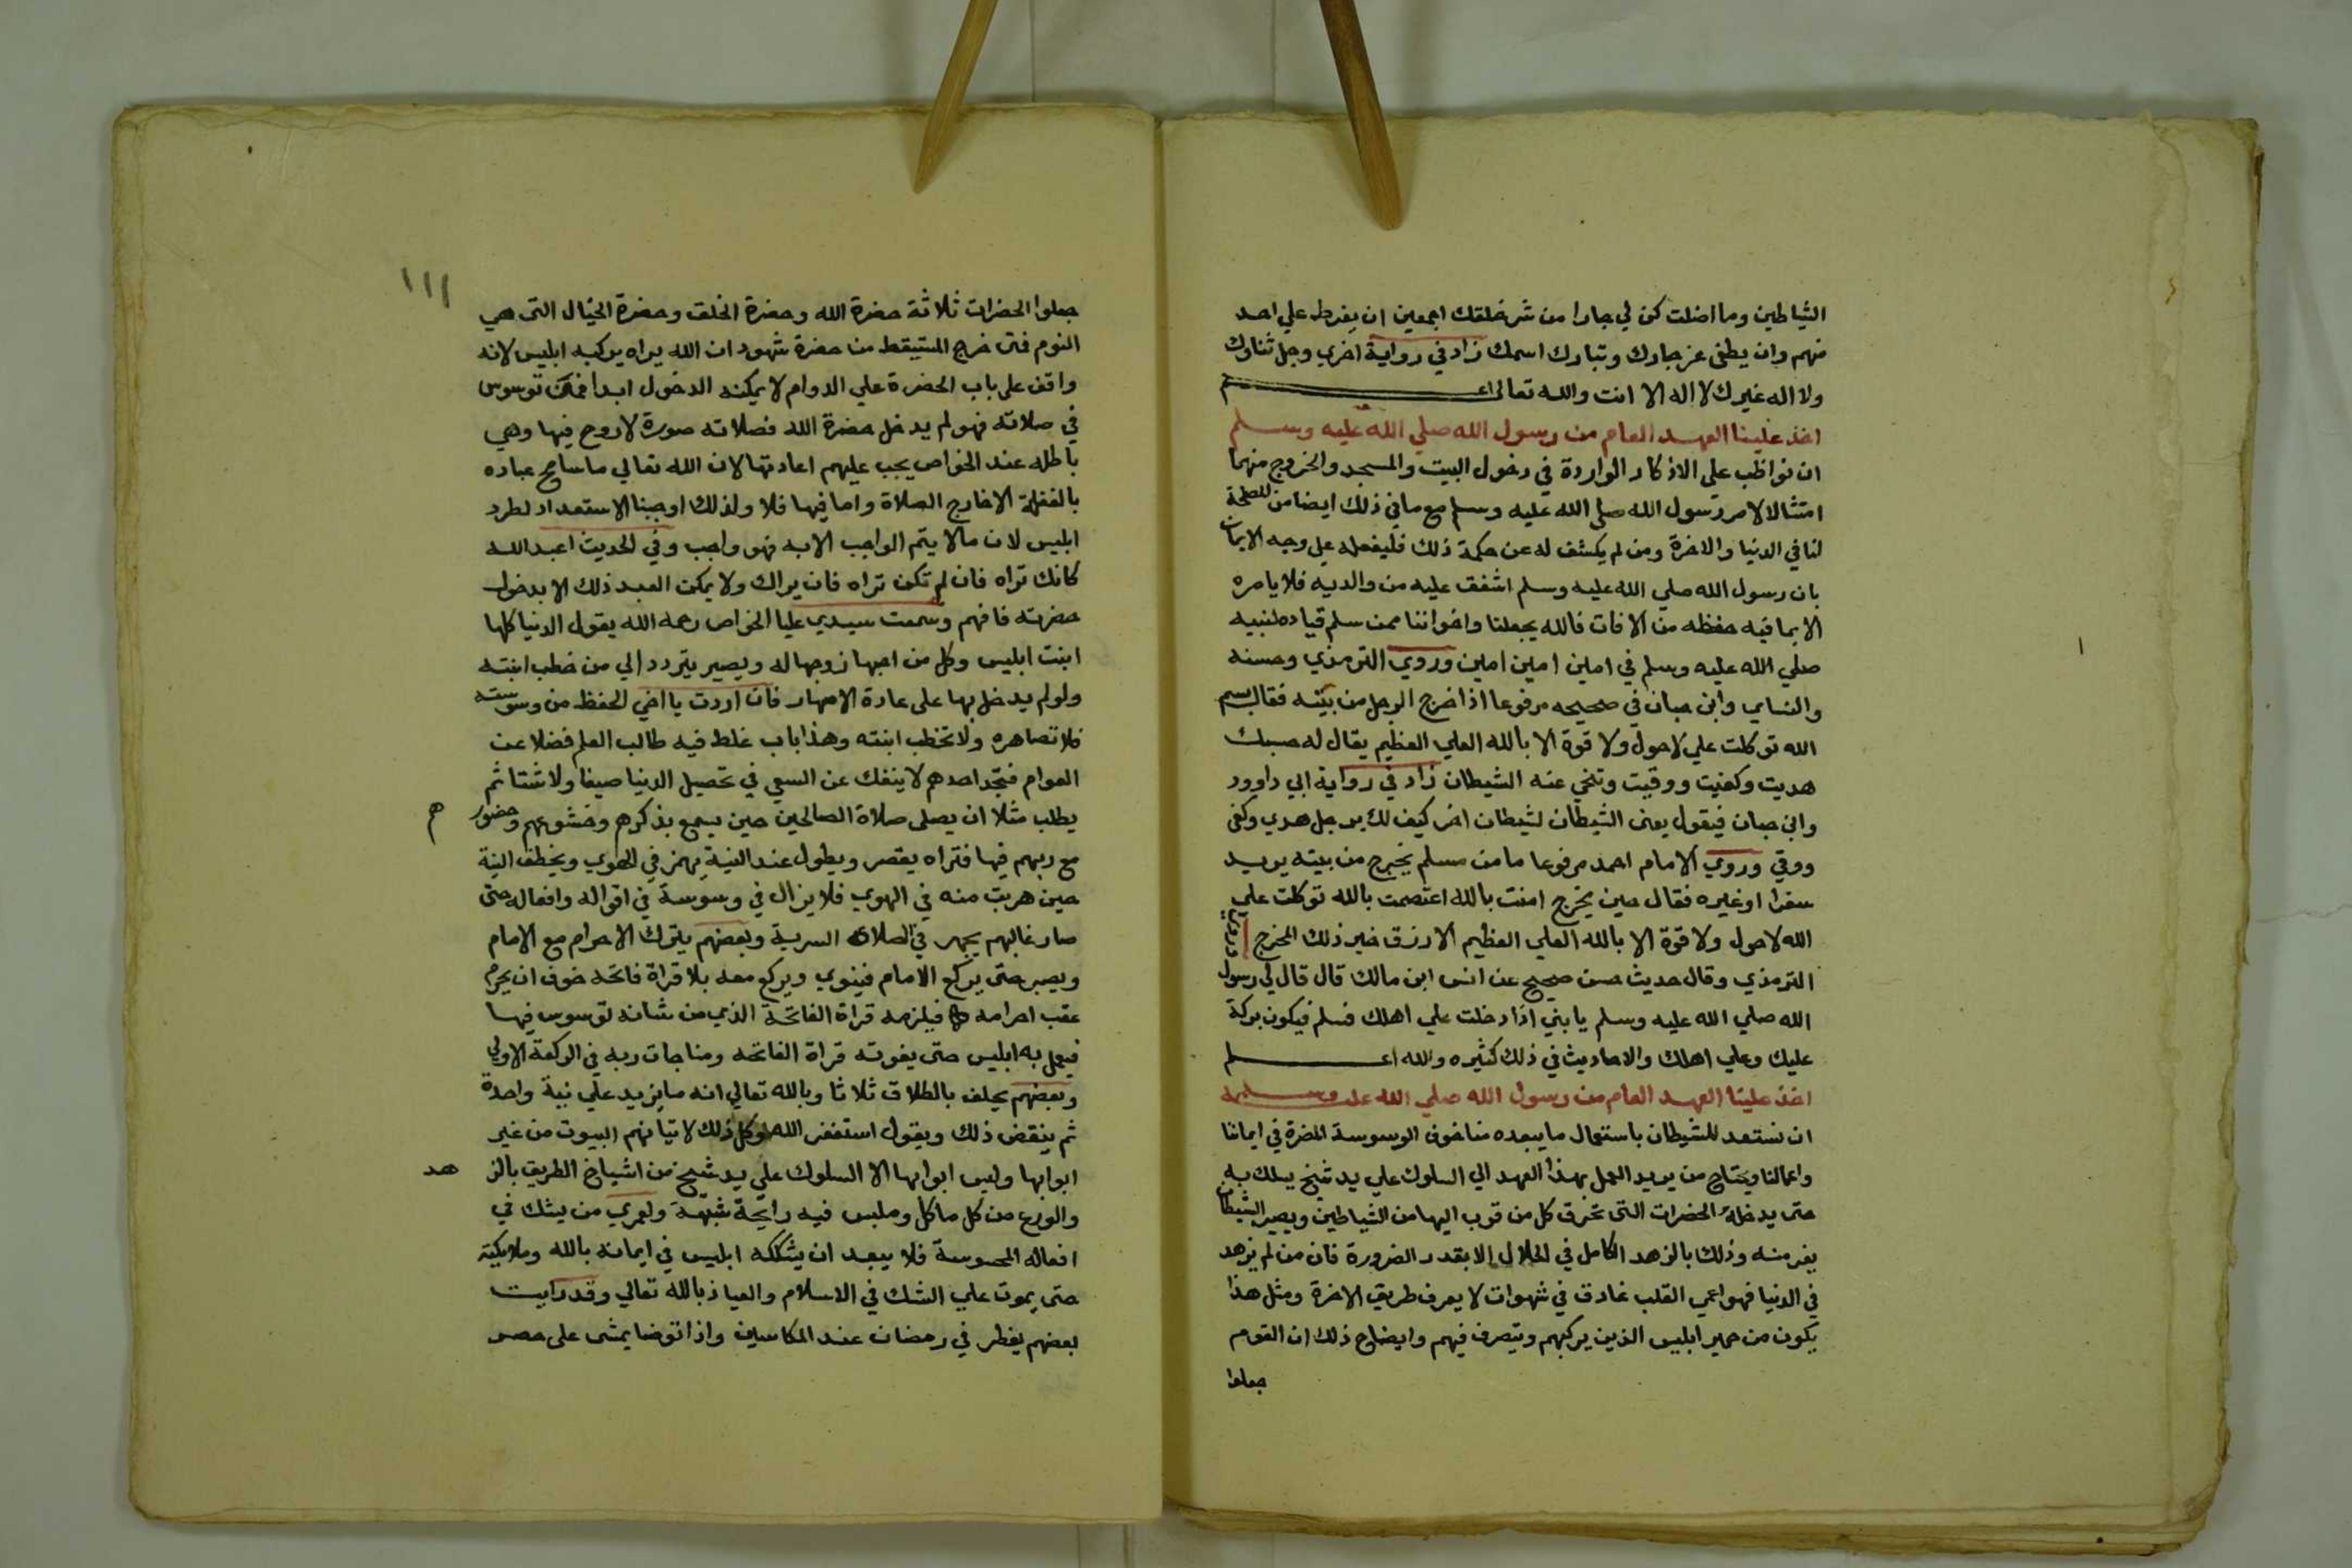 الشياطين وما اضلت كن لي جارا من شر خلقك اجمعين ان يفرط علي احد
منهم وان يطغى عز جارك وتبارك اسمك زاد في رواية اخري وجل ثناوك
ولا اله غيرك لا اله الا انت والله تعالى اعلم
اخذ علينا العهد العام من رسول الله صلي الله عليه وسلم
ان نواظب على الاذكار الواردة في دخول البيت والمسجد والخروج منهما
امتثالا لامر رسول الله صلى الله عليه وسلم مع ما في ذلك ايضا من المصلحة
لنا في الدنيا والاخرة ومن لم يكشف له عن حكمة ذلك فليفعله على وجه الايمان
بان رسول الله صلي الله عليه وسلم اشفق عليه من والديه فلا يامره
الا بما فيه حفظه من الافات فالله يجعلنا واخواننا ممن سلم قياده لنبيه
صلي الله عليه وسلم في امين امين امين وروي الترمذي وحسنه
والنساي وابن حبان في صحيحه مرفوعا اذا خرج الرجل من بيته فقال بسم
الله توكلت علي لاحول ولا قوة الا بالله العلي العظيم يقال له حسبك
هديت وكفيت ووقيت وتنحي عنه الشيطان زاد في رواية ابي داوود
وابن حبان فيقول يعنى الشيطان لشيطان اخر كيف لك برجل هدي وكفى
ووقي وروي الامام احمد مرفوعا ما من مسلم يخرج من بيته يريد
سفرا او غيره فقال حين يخرج امنت بالله اعتصمت بالله توكلت علي
الله لاحول ولا قوة الا بالله العلي العظيم الا رزق خير ذلك المخرج وروي
الترمذي وقال حديث حسن صحيح عن انس ابن مالك قال قال لي رسول
الله صلي الله عليه وسلم يا بني اذا دخلت علي اهلك فسلم فيكون بركة
عليك وعلي اهلك والاحاديث في ذلك كثيره والله اعلم
اخذ علينا العهد العام من رسول الله صلي الله عليه وسلم
ان نستعد للشيطان باستعمال ما يبعده منا خوف الوسوسة المضرة في ايماننا
واعمالنا ويحتاج من يريد العمل بهذا العهد الي السلوك علي يد شيخ يسلك به
حتى يدخله الحضرات التى تحرق كل من قرب اليها من الشياطين ويصير الشيطان
يفر منه وذلك بالزهد الكامل في الحلال الا بقدر الضرورة فان من لم يزهد
في الدنيا فهو اعمي القلب غارق في شهوات لا يعرف طريق الاخرة ومثل هذا
يكون من حمير ابليس الذين يركبهم ويتصرف فيهم وايضاح ذلك ان القوم
جعلوا
١١١
جعلوا الحضرات ثلاثة حضرة الله وحضرة الخلق وحضرة الخيال التى هي
النوم فتى خرج المستيقظ من حضرة شهود ان الله يراه يركبه ابليس لانه
واقف على باب الحضرة علي الدوام لا يمكنه الدخول ابدا فمن توسوس
في صلاته فهو لم يدخل حضرة الله فصلاته صورة لا روح فيها وهي
باطله عند الخواص يجب عليهم اعادتها لان الله تعالي ما سامح عباده
بالغفلة الا خارج الصلاة واما فيها فلا ولذلك اوجبنا الاستعداد لطرد
ابليس لان مالا يتم الواجب الا به فهو واجب وفي الحديث اعبد الله
كانك تراه فان لم تكن تراه فان يراك ولا يمكن العبد ذلك الا بدخول
حضرته فافهم وسمعت سيدي عليا الخواص رحمه الله يقول الدنيا كلها
ابنت ابليس وكل من احبها زوجها له ويصير يتردد الي من خطب ابنته
ولولم يدخل بها على عادة الاصهار فان اردت يا اخي الحفظ من وسوسته
فلا تصاهره ولا تخطب ابنته وهذا باب غلط فيه طالب العلم فضلا عن
العوام فتجد احدهم لا ينفك عن السعي في تحصيل الدنيا صيفا ولا شتا ثم
يطلب مثلا ان يصلى صلاة الصالحين حين يسمع بذكرهم وخشوعهم وحضورهم
مع ربهم فيها فتراه يقصر ويطول عند النية يهمز في الهوي ويخطف النية
حين هربت منه في الهوي فلا يزال في وسوسة في اقواله وافعاله حتى
صار غالبهم يجهر في الصلاة السرية وبعضهم يترك الاحرام مع الامام
ويصبر حتى يركع الامام فينوي ويركع معه بلا قراة فاتحه خوف ان يحرم
عقب احرامه فيلزمه قراة الفاتحة الذي من شانه توسوس فيها
فيعمل به ابليس حتى يفوته قراة الفاتحه ومناجات ربه في الركعة الاولي
وبعضهم يحلف بالطلاق ثلاثا وبالله تعالي انه ما يزيد علي نية واحدة
ثم ينقض ذلك ويقول استغفر الله وكل ذلك لاتيانهم البيوت من غير
ابوابها وليس ابوابها الا السلوك علي يد شيخ من اشياخ الطريق بالزهد
والورع من كل ماكل وملبس فيه رايحة شبهة ولعمري من يشك في
افعاله المحسوسة فلا يبعد ان يشككه ابليس في ايمانه بالله وملايكته
حتى يموت علي الشك في الاسلام والعياذ بالله تعالي وقد رايت
بعضهم يفطر في رمضان عند المكاسين واذا توضا يمشى على حصر